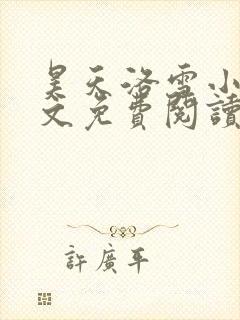 昊天洛雪小
文免費閱讀
許廣平